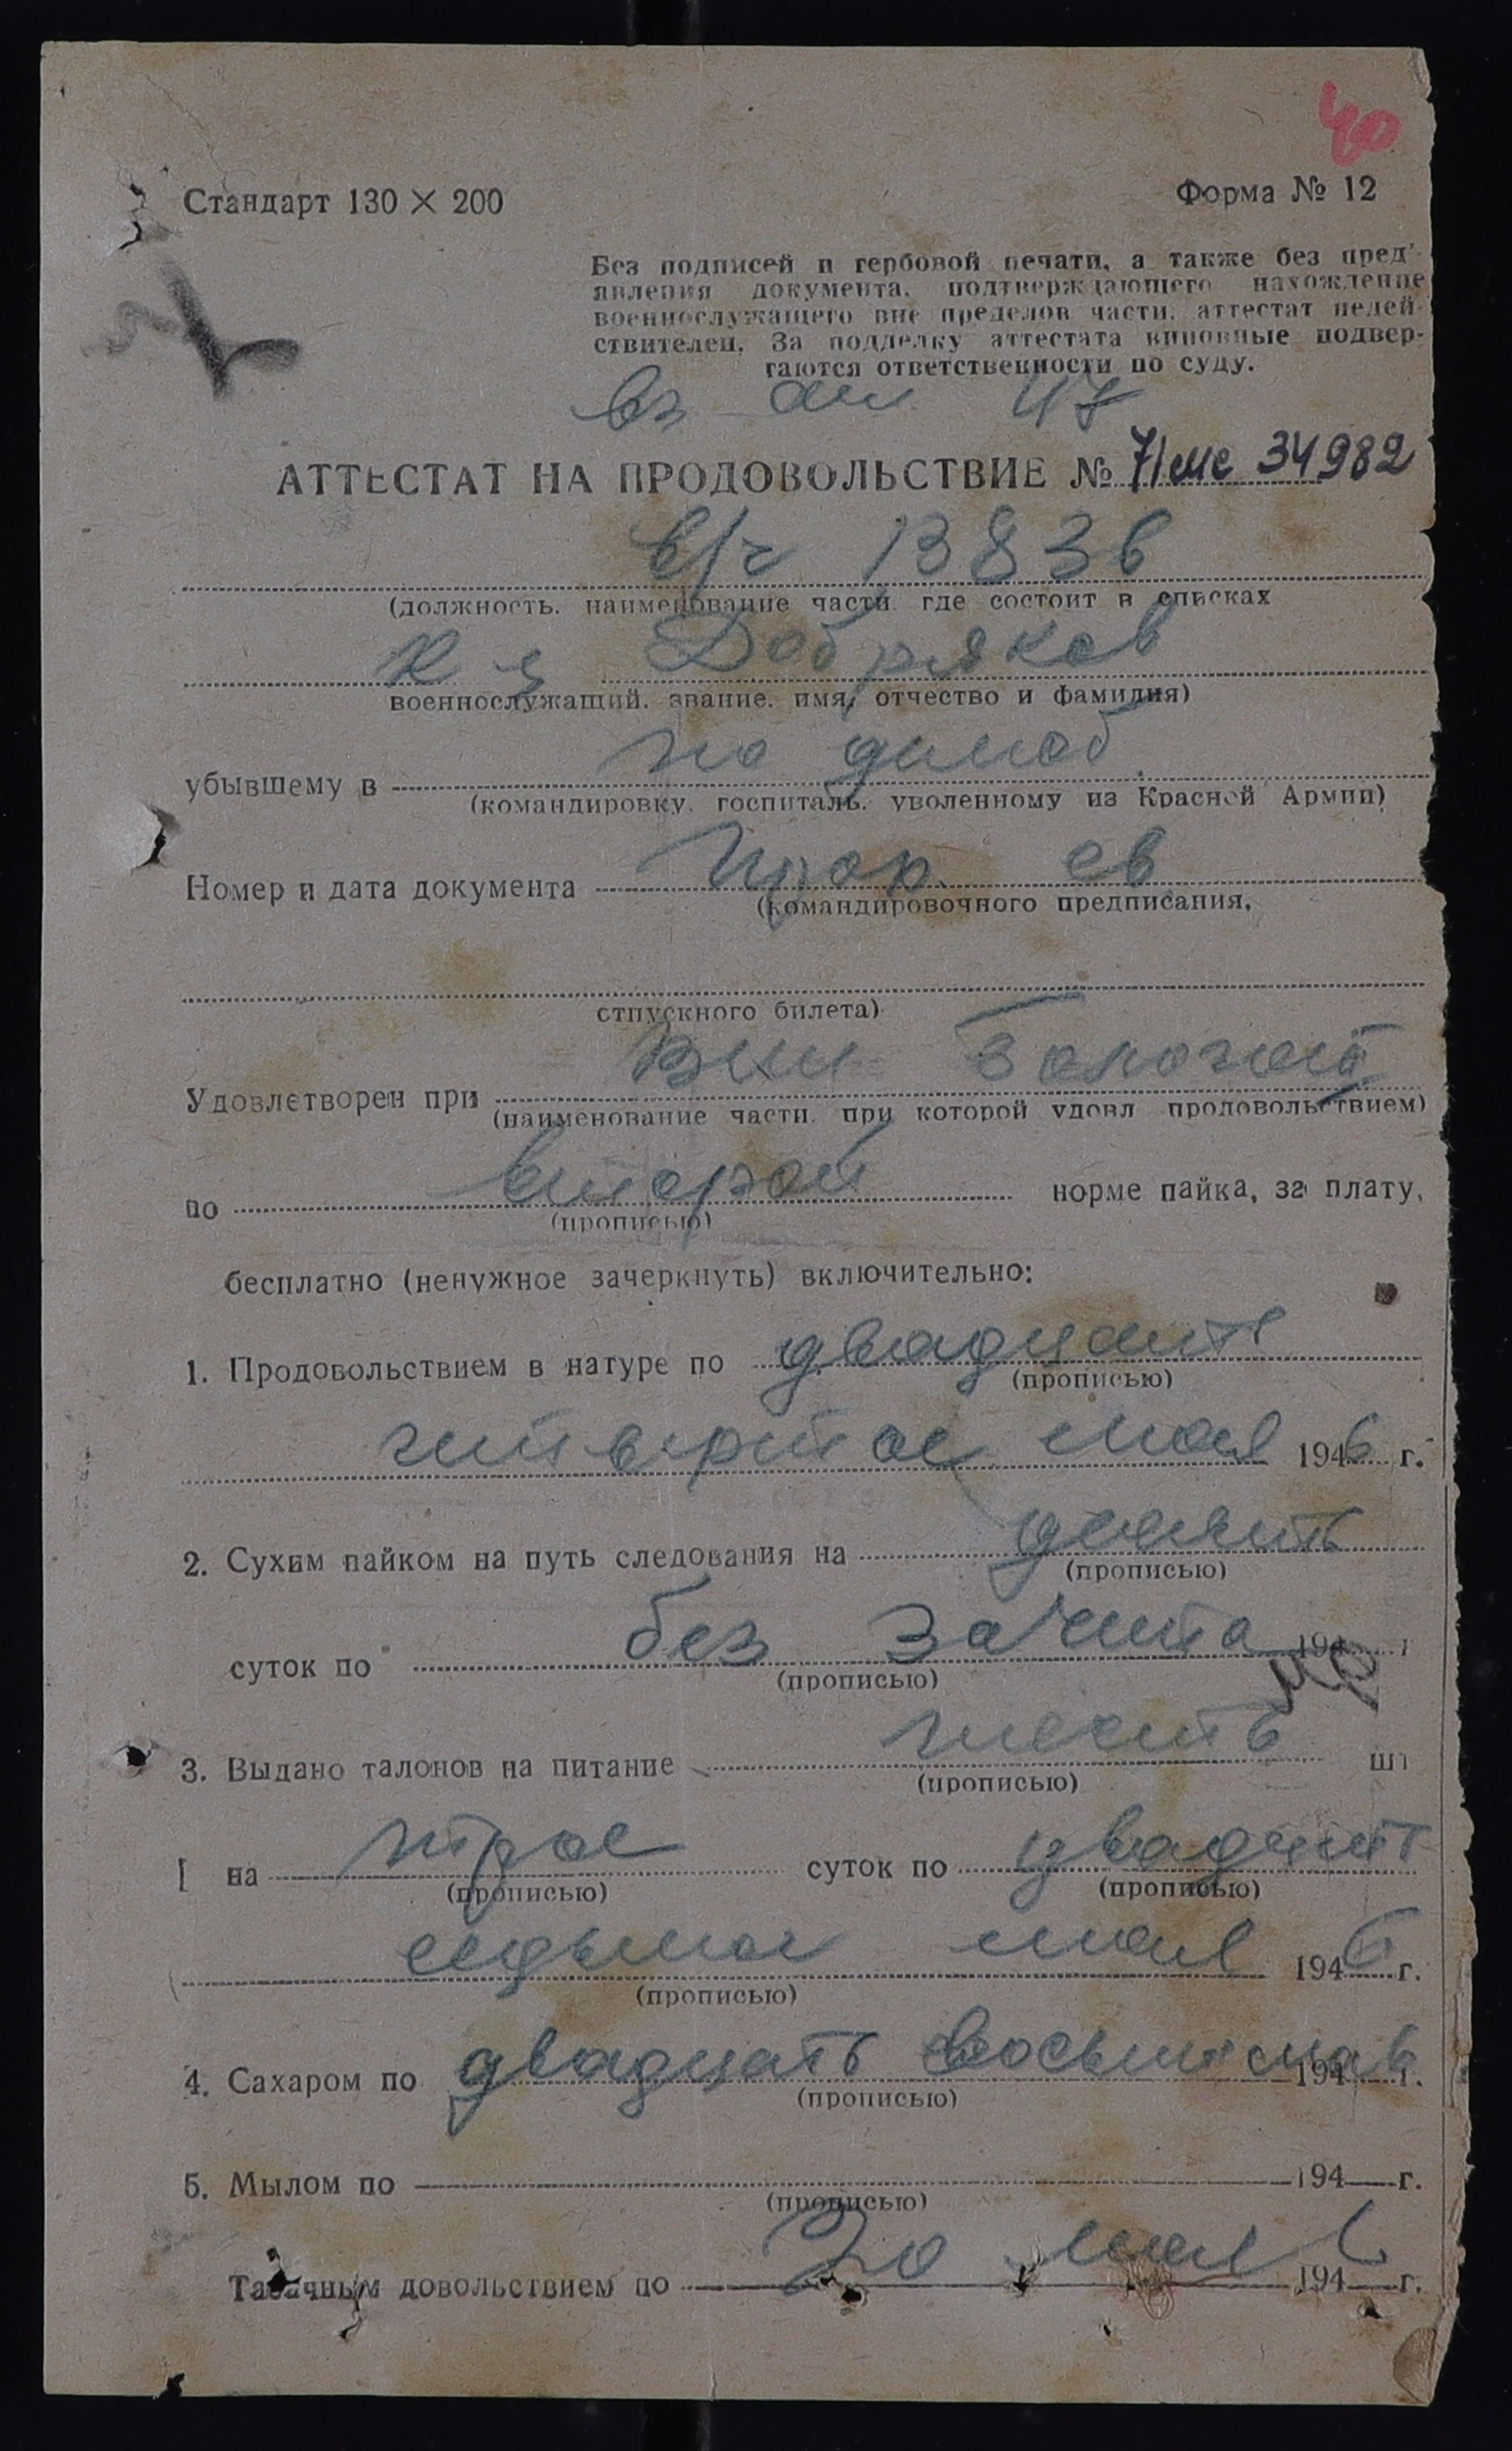 40
Стандарт 130 × 200
Форма № 12
Без подписей и гербовой печати, а также без пред'-
явления документа, подтверждающего нахождение
военнослужащего вне пределов части, аттестат недей-
ствителен. За подделку аттестата виновные подвер-
гаются ответственности по суду.
вз 47
АТТЕСТАТ НА ПРОДОВОЛЬСТВИЕ № 7/ 34982
в/ч 13836
(должность, наименование части, где состоит в списках
Добряков
военнослужащий, звание, имя, отчество и фамилия)
убывшему в по димоб
(командировку, госпиталь, уволенному из Красной Армии)
Номер и дата документа
(командировочного предписания,
отпускного билета)
Удовлетворен при Бологой
(наименование части, при которой удовл продовольствием)
по второй норме пайка, за плату,
(прописью)
бесплатно (ненужное зачеркнуть) включительно:
1. Продовольствием в натуре по двадцать
(прописью)
читвертое мая 1946 г.
2. Сухим пайком на путь следования на
(прописью)
суток по без зачита 194 г
(прописью)
3. Выдано талонов на питание шесть шт
(прописью)
на трое суток по двадцат
(прописью) (прописью)
седьмое мая 1946 г.
(прописью)
4. Сахаром по двадцать восьмое мая 1946 г.
(прописью)
5. Мылом по 194 г.
(прописью)
Табачным довольствием по 20 мая 6 194 г.